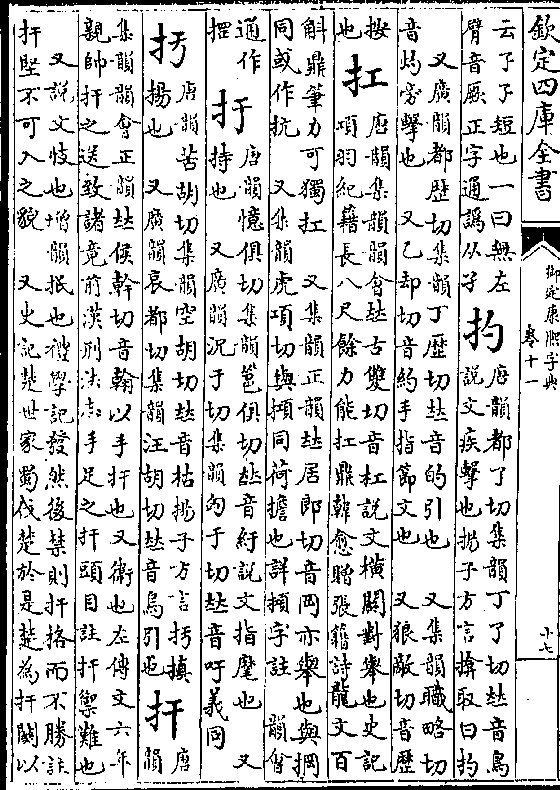 欽定四庫全書
御定康熙字典
卷十一
十七
云孑孑短也一曰無左
臂音厥正字通譌从子
扚
唐韻都了切集韻丁了切𠀤音鳥
說文疾擊也揚子方言擒取曰扚
又廣韻都歷切集韻丁歷切𠀤音的引也 又集韻職略切
音灼旁擊也 又乙却切音約手指節文也 又狼敵切音歷
按
也
扛
唐韻集韻韻會𠀤古雙切音杠說文橫關對舉也史記
項羽紀籍長八尺餘力能扛鼎韓愈贈張籍詩龍文百
斛鼎筆力可獨扛 又集韻正韻𠀤居郎切音岡亦舉也與掆
同或作抗 又集韻虎項切與㧣同荷擔也詳㧣字註 韻會
通作
扜
唐韻憶俱切集韻邕俱切𠀤音紆說文指麾也 又
持也 又廣韻況于切集韻匈于切𠀤音吁義同
扝
唐韻苦胡切集韻空胡切𠀤音枯揚子方言扝搷
揚也 又廣韻哀都切集韻汪胡切𠀤音烏引也
扞
唐
韻
集韻韻會正韻𠀤侯幹切音翰以手扞也又衛也左傳文六年
親帥扞之送致諸竟前漢刑法志手足之扞頭目註扞禦難也
又說文忮也增韻抵也禮學記發然後禁則扞格而不勝註
扞堅不可入之貌 又史記楚世家蜀伐楚於是楚為扞關以